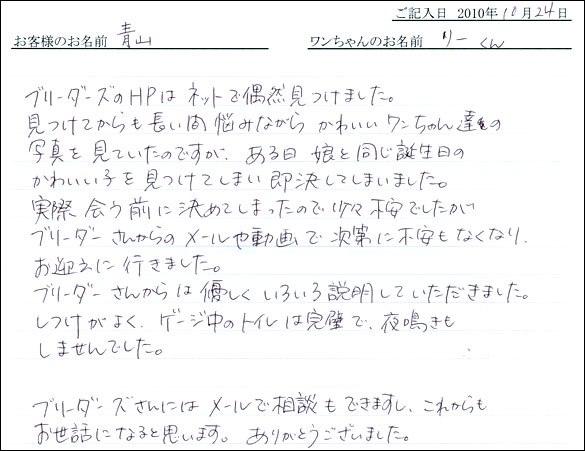 ご記入日 2010年10月24日
お客様のお名前 青山 ワンちゃんのお名前 リーくん
ブリーダーズのHPはネットで偶然見つけました。
見つけてからも長い間悩みながらかわいいワンちゃん達の
写真を見ていたのですが、ある日娘と同じ誕生日の
かわいい子を見つけてしまい即決してしまいました。
実際会う前に決めてしまったので少々不安でしたが
ブリーダーさんからのメールや動画で次第に不安もなくなり、
お迎えに行きました。
ブリーダーさんからは優しくいろいろ説明していただきました。
しつけがよく、ゲージ中のトイレは完璧で、夜鳴きも
しませんでした。
ブリーダーズさんにはメールで相談もできますし、これからも
お世話になると思います。ありがとうございました。